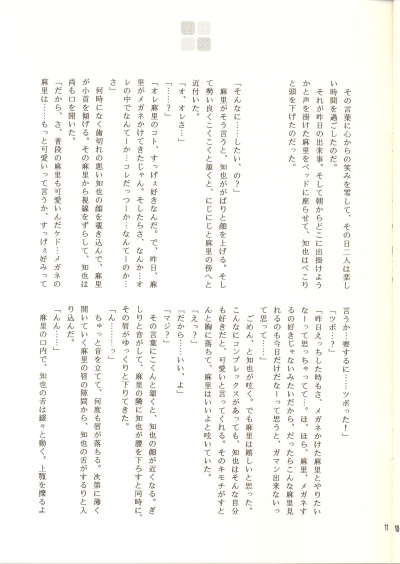 その言葉に心からの笑みを零して、その日二人は楽し
い時間を過ごしたのだ。
それが昨日の出来事。そして朝からどこに出掛けよう
かと声を掛けた麻里をベッドに座らせて、知也はぺこり
と頭を下げたのだった。
「そんなに……したい、の？」
麻里がそう言うと、知也ががばりと顔を上げる。そし
て勢い良くこくこくと頷くと、にじにじと麻里の傍へと
近付いた。
「オ、オレさ…」
「……？」
「オレ麻里のコト、すっげぇ好きなんだ。で、昨日、麻
里がメガネかけてきたじゃん。そしたらさ、なんか…オ
レの中でなんてーか…コレだっつーか…なんてーのか…
さ」
何時になく歯切れの悪い知也の顔を覗き込んで、麻里
が小首を傾げる。その麻里から視線をずらして、知也は
尚も口を開いた。
「だから、さ、普段の麻里も可愛いんだケド…メガネの
麻里は……もっと可愛いって言うか、すっげぇ好みって
言うか…要するに……ツボった！」
「ツボ…？」
「昨日えっちした時もさ、メガネかけた麻里とやりたい
なーって思っちゃってて…。ほ、ほら、麻里、メガネす
るの好きじゃないみたいだから、だったらこんな麻里見
れるのも今日だけだなーって思うと、ガマン出来ないっ
て思って……」
ごめん、と知也が呟く。でも麻里は嬉しいと思った。
こんなにコンプレックスがあっても、知也はそんな自分
も好きだと、可愛いと言ってくれる。そのキモチがすと
んと胸に落ちて、麻里はいいよと呟いていた。
「えっ？」
「だから……いい、よ」
「マジ？」
その言葉にこくんと頷くと、知也の顔が近くなる。ぎ
しりと音がして、麻里の隣に知也が腰を下ろすと同時に、
その唇がゆっくりと下りてきた。
「ん……っ」
ちゅっと音を立てて、何度も唇が落ちる。次第に薄く
開いていく麻里の唇の隙間から、知也の舌がするりと入
り込んだ。
「んん……」
麻里の口内で、知也の舌は緩々と動く。上顎を擽るよ
11
10